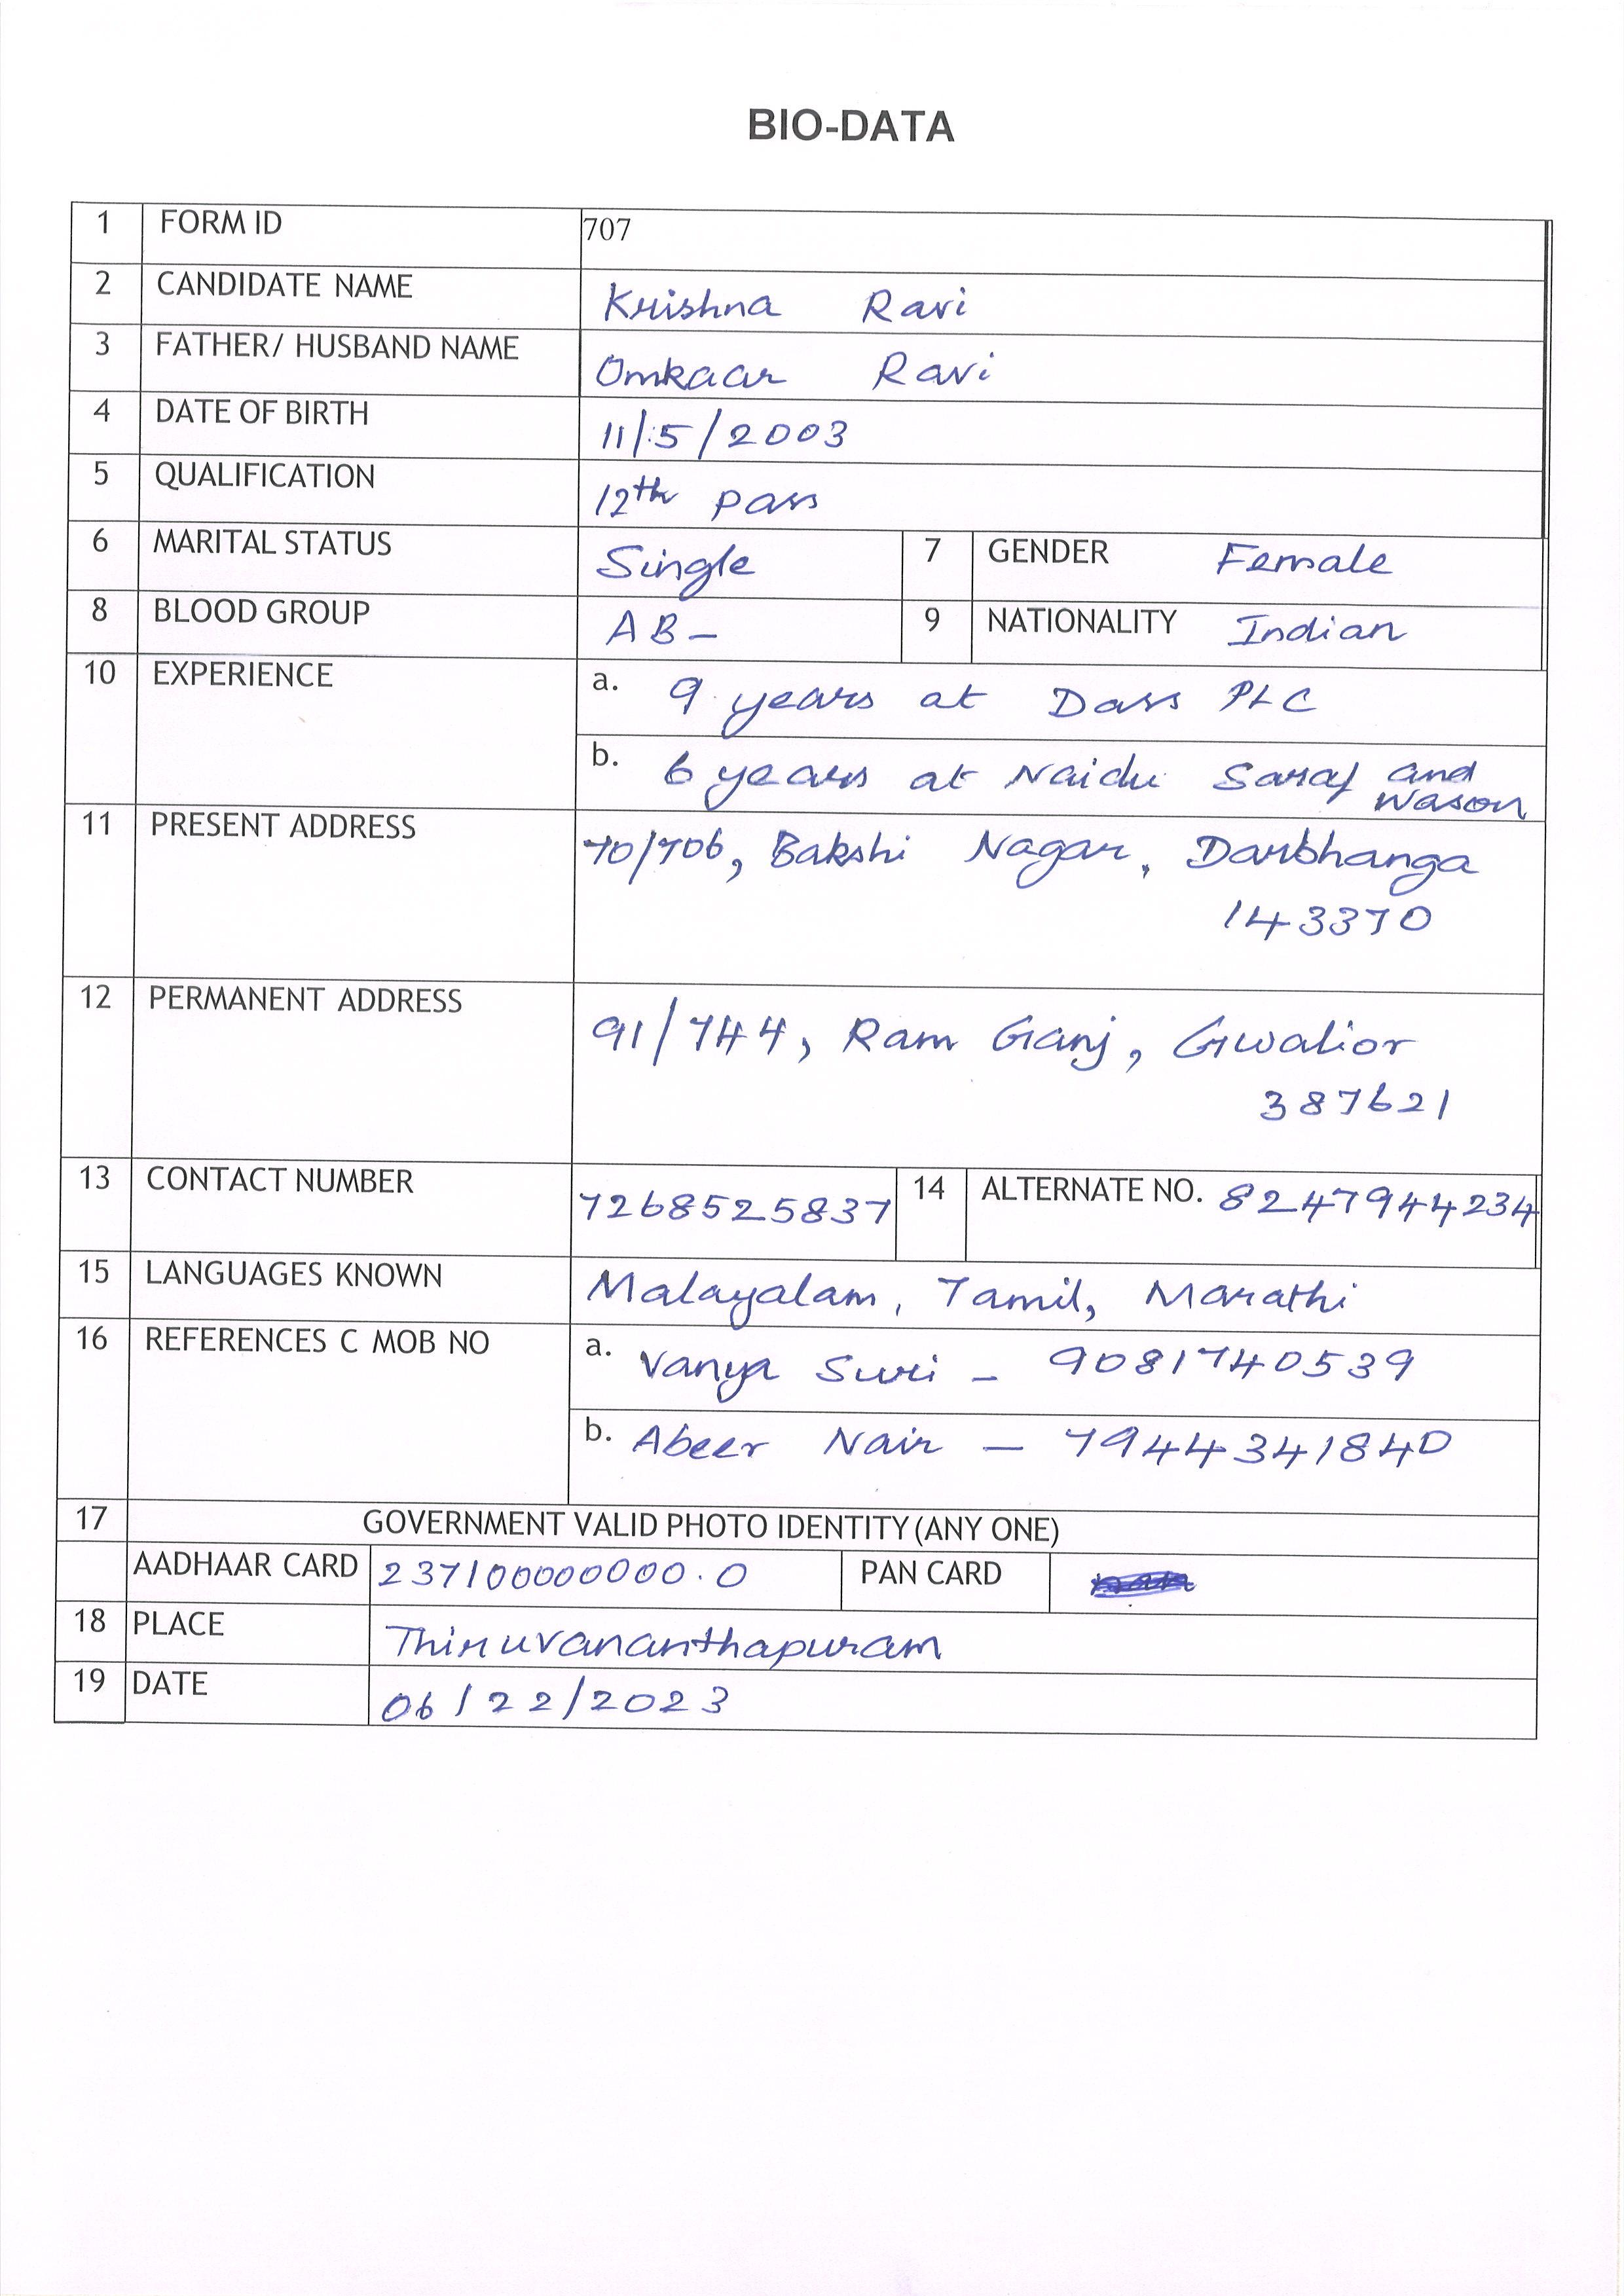 BIO-DATA
1 FORM ID 707
2 CANDIDATE NAME Krishna Ravi
3 FATHER/ HUSBAND NAME Omkaar Ravi
4 DATE OF BIRTH 11/5/2003
5 QUALIFICATION 12th pass
6 MARITAL STATUS Single 7 GENDER Female
8 BLOOD GROUP AB- 9 NATIONALITY Indian
10 EXPERIENCE a. 9 years at Dass PLC
b. 6 years at Naidu Saraf and
Wason
11 PRESENT ADDRESS 70/706, Bakshi Nagar, Darbhanga
143370
12 PERMANENT ADDRESS 91/744, Ram Ganj, Gwalior
387621
13 CONTACT NUMBER 7268525837 14 ALTERNATE NO. 8247944234
15 LANGUAGES KNOWN Malayalam, Tamil, Marathi
16 REFERENCES C MOB NO a. Vanya Suri - 9081740539
b. Abeer Nair - 7944341840
17 GOVERNMENT VALID PHOTO IDENTITY (ANY ONE)
AADHAAR CARD 237100000000.0 PAN CARD
18 PLACE Thiruvananthapuram
19 DATE 06/22/2023